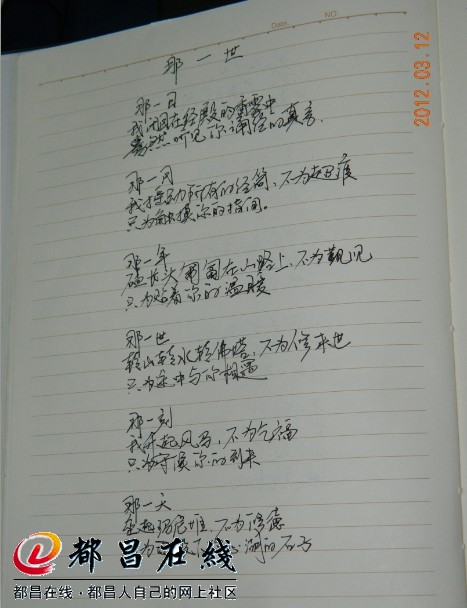 Date.
NO.
2012.03.12
那一世
那一日
我闭目在经殿的香雾中
蓦然听见你诵经的真言
那一月
我摇动所有的经筒、不为超度
只为触摸你的指间。
那一年
磕长头匍匐在山路上、不为觐见
只为贴着你的温暖
那一世
转山转水转佛塔、不为修来世
只为途中与你相遇
那一刻
我升起风马、不为乞福
只为守候你的到来
那一天
垒起玛尼堆、不为修德
为 湖的石子
都昌在线
都昌在线·都昌人自己的网上社区